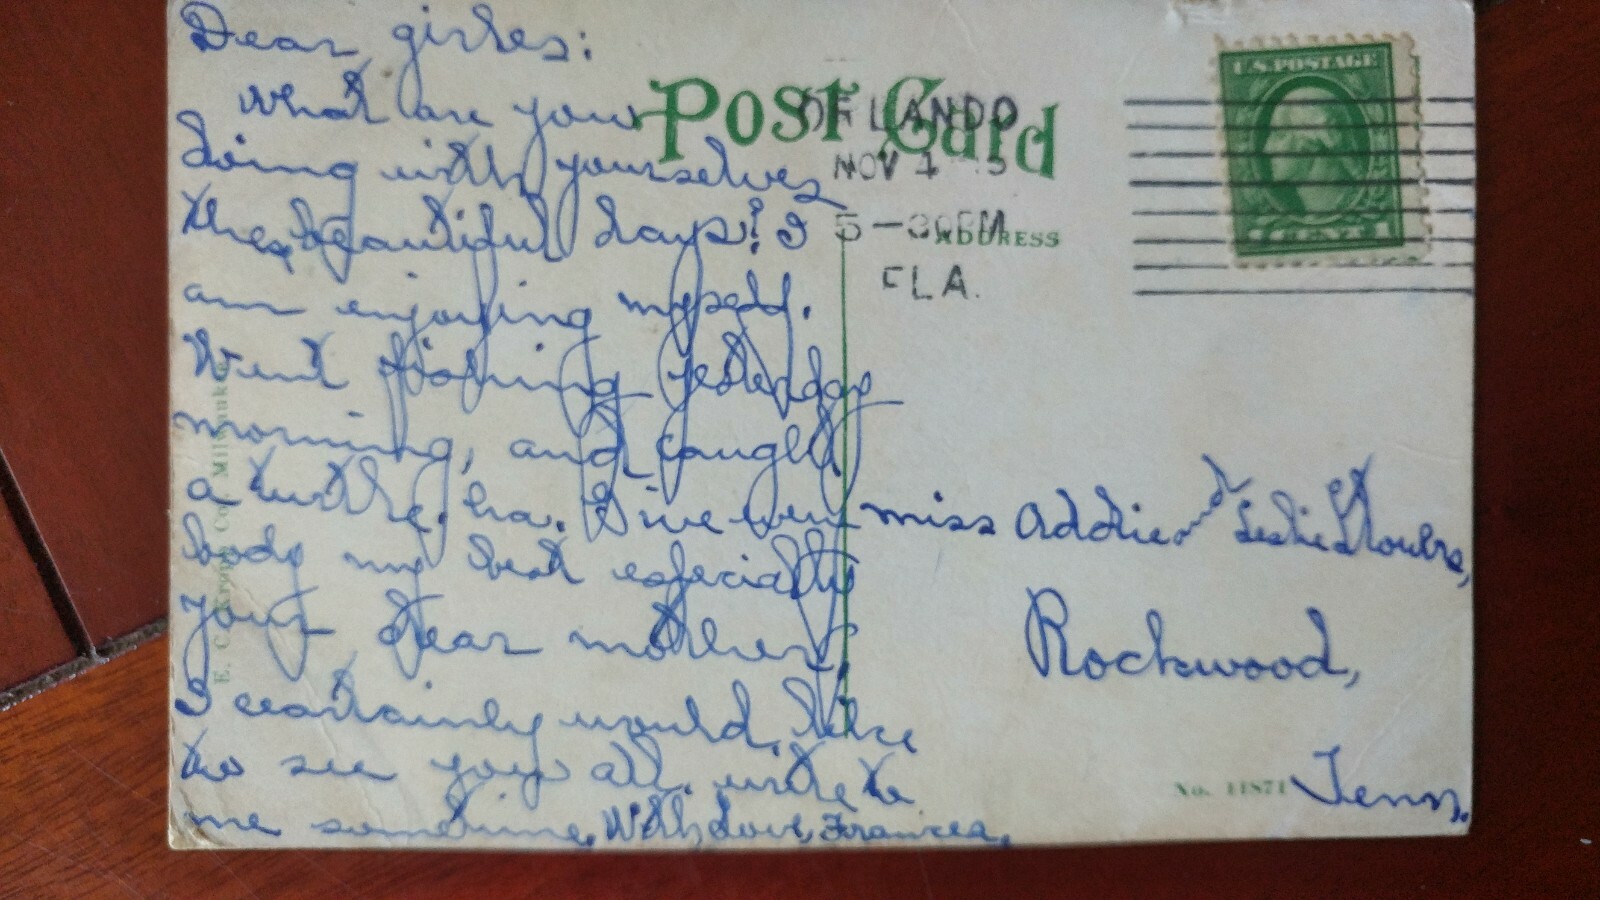 Dear girles:
What are you
doing with yourselves
these beautiful days? I
am enjoying myself.
Went fishing yesterday
morning, and caught
a turtle. ha. Give every
body my best especially
your dear mother.
I certainly would like
to see you all. write to
me sometime. With love, Frances.
Post Card
ORLANDO
NOV 1
5-30PM
FLA.
ADDRESS
U.S. POSTAGE
1 CENT 1
miss Addie and Leslie Flowers,
Rockwood,
Tenn.
No. 11871
E. C. Kropp Co., Milwaukee